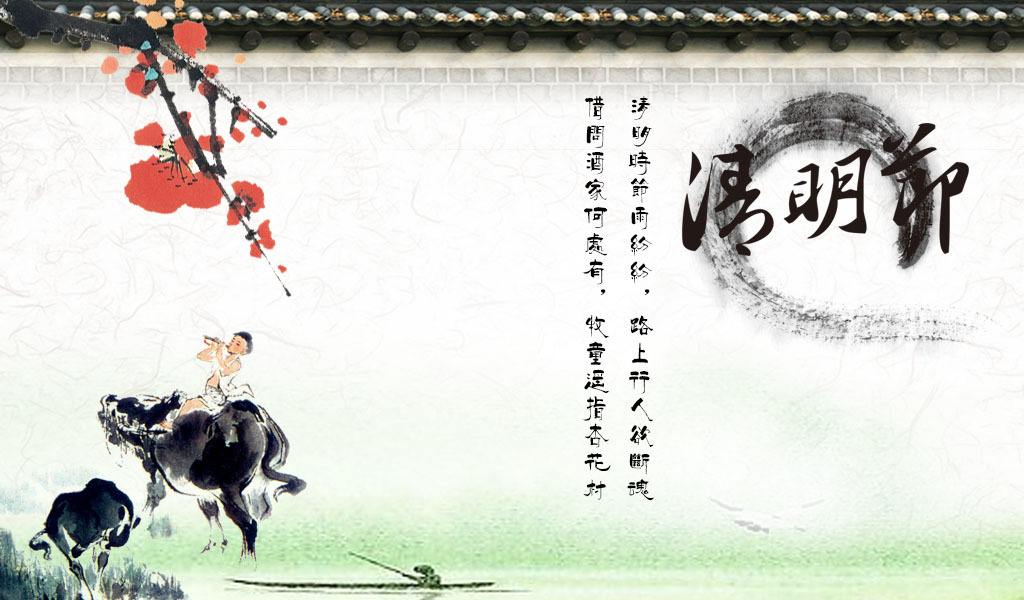 清明節
清明時節雨紛紛，路上行人欲斷魂
借問酒家何處有，牧童遥指杏花村